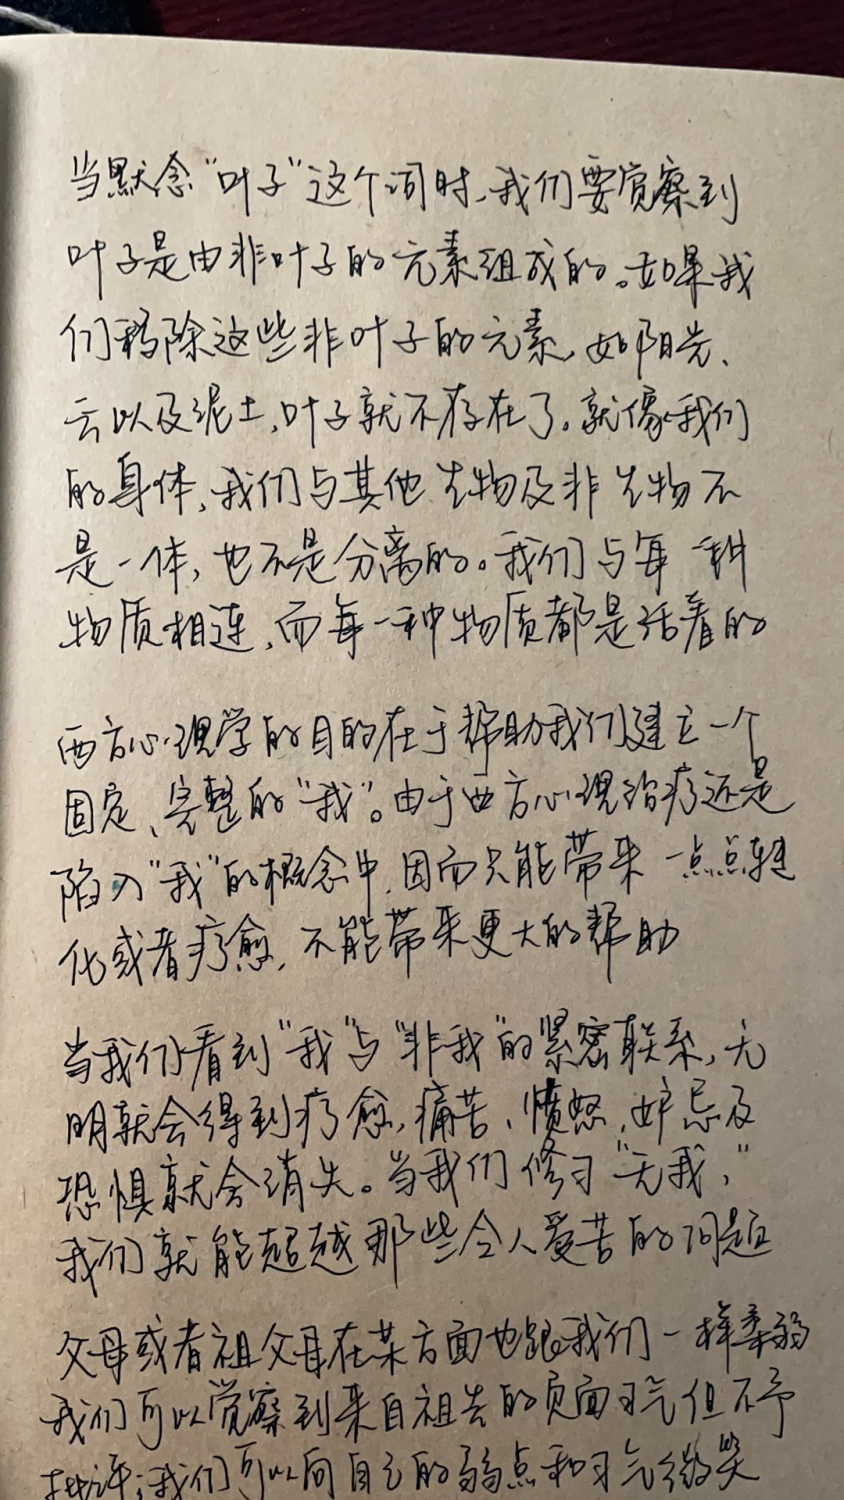 当默念“叶子”这个词时，我们要觉察到
叶子是由非叶子的元素组成的。如果我
们移除这些非叶子的元素，如阳光、
云以及泥土，叶子就不存在了。就像我们
的身体，我们与其他生物及非生物不
是一体，也不是分离的。我们与每一种
物质相连，而每一种物质都是活着的
西方心理学的目的在于帮助我们建立一个
固定、完整的“我”。由于西方心理治疗还是
陷入“我”的概念中，因而只能带来一点点转
化或者疗愈，不能带来更大的帮助
当我们看到“我”与“非我”的紧密联系，无
明就会得到疗愈，痛苦、愤怒、妒忌及
恐惧就会消失。当我们修习“无我，”
我们就能超越那些令人受苦的问题
父母或者祖父母在某方面也跟我们一样柔弱
我们可以觉察到来自祖先的负面习气但不予
批评；我们可以向自己的弱点和习气微笑